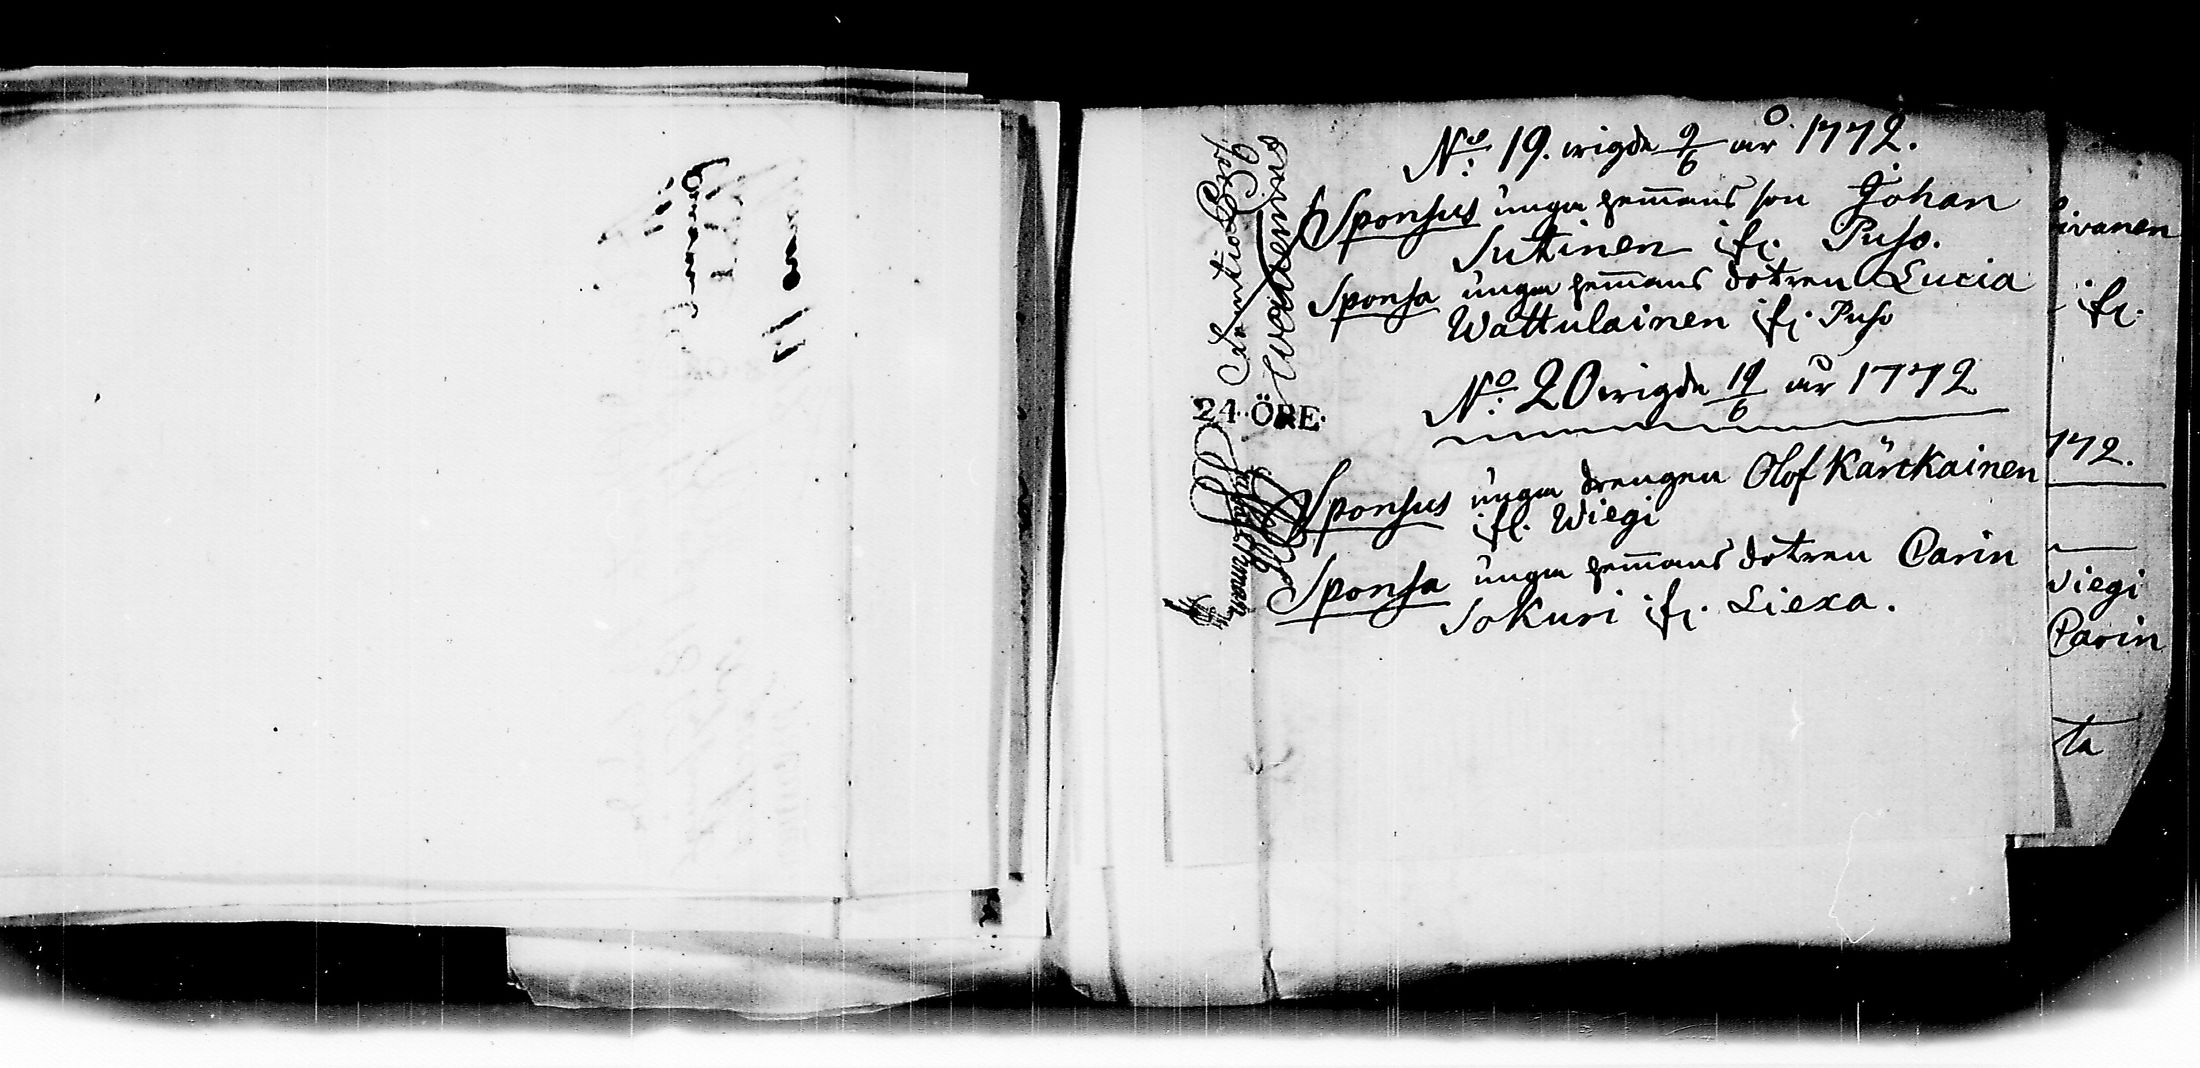 No: 19. wigde 9/6 år 1772.
Sponsus unga hem̄ans son Johan
Suttinen ifr. Puso.
Sponsa unga hem̄ans dotren Lucia
Wattulainen ifr. Puso
No: 20 wigde 19/6 år 1772
Sponsus unga drengen Olof Kärckainen
ifr. Wiegi
Sponsa unga hem̄ans dotren Carin
Sokuri ifr. Liexa.
24 ÖRE.
ivanen
ifr.
772.
viegi
Carin
ta